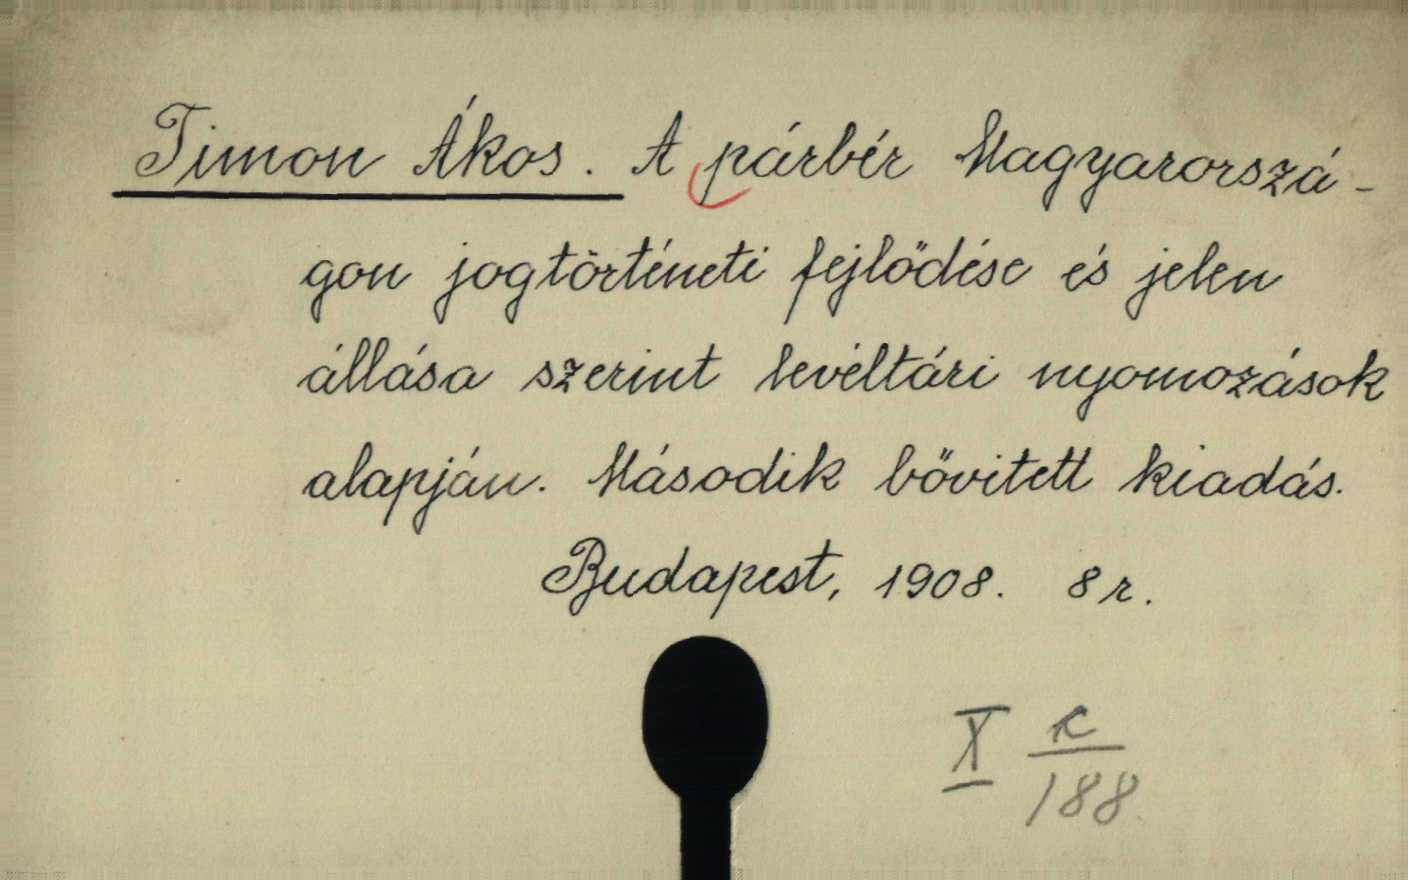 Timon Ákos. A párbér Magyarorszá-
gon jogtörténeti fejlődése és jelen
állása szerint levéltári nyomozások
alapján. Második bővitett kiadás.
Budapest, 1908. 8 r.
X c
188.